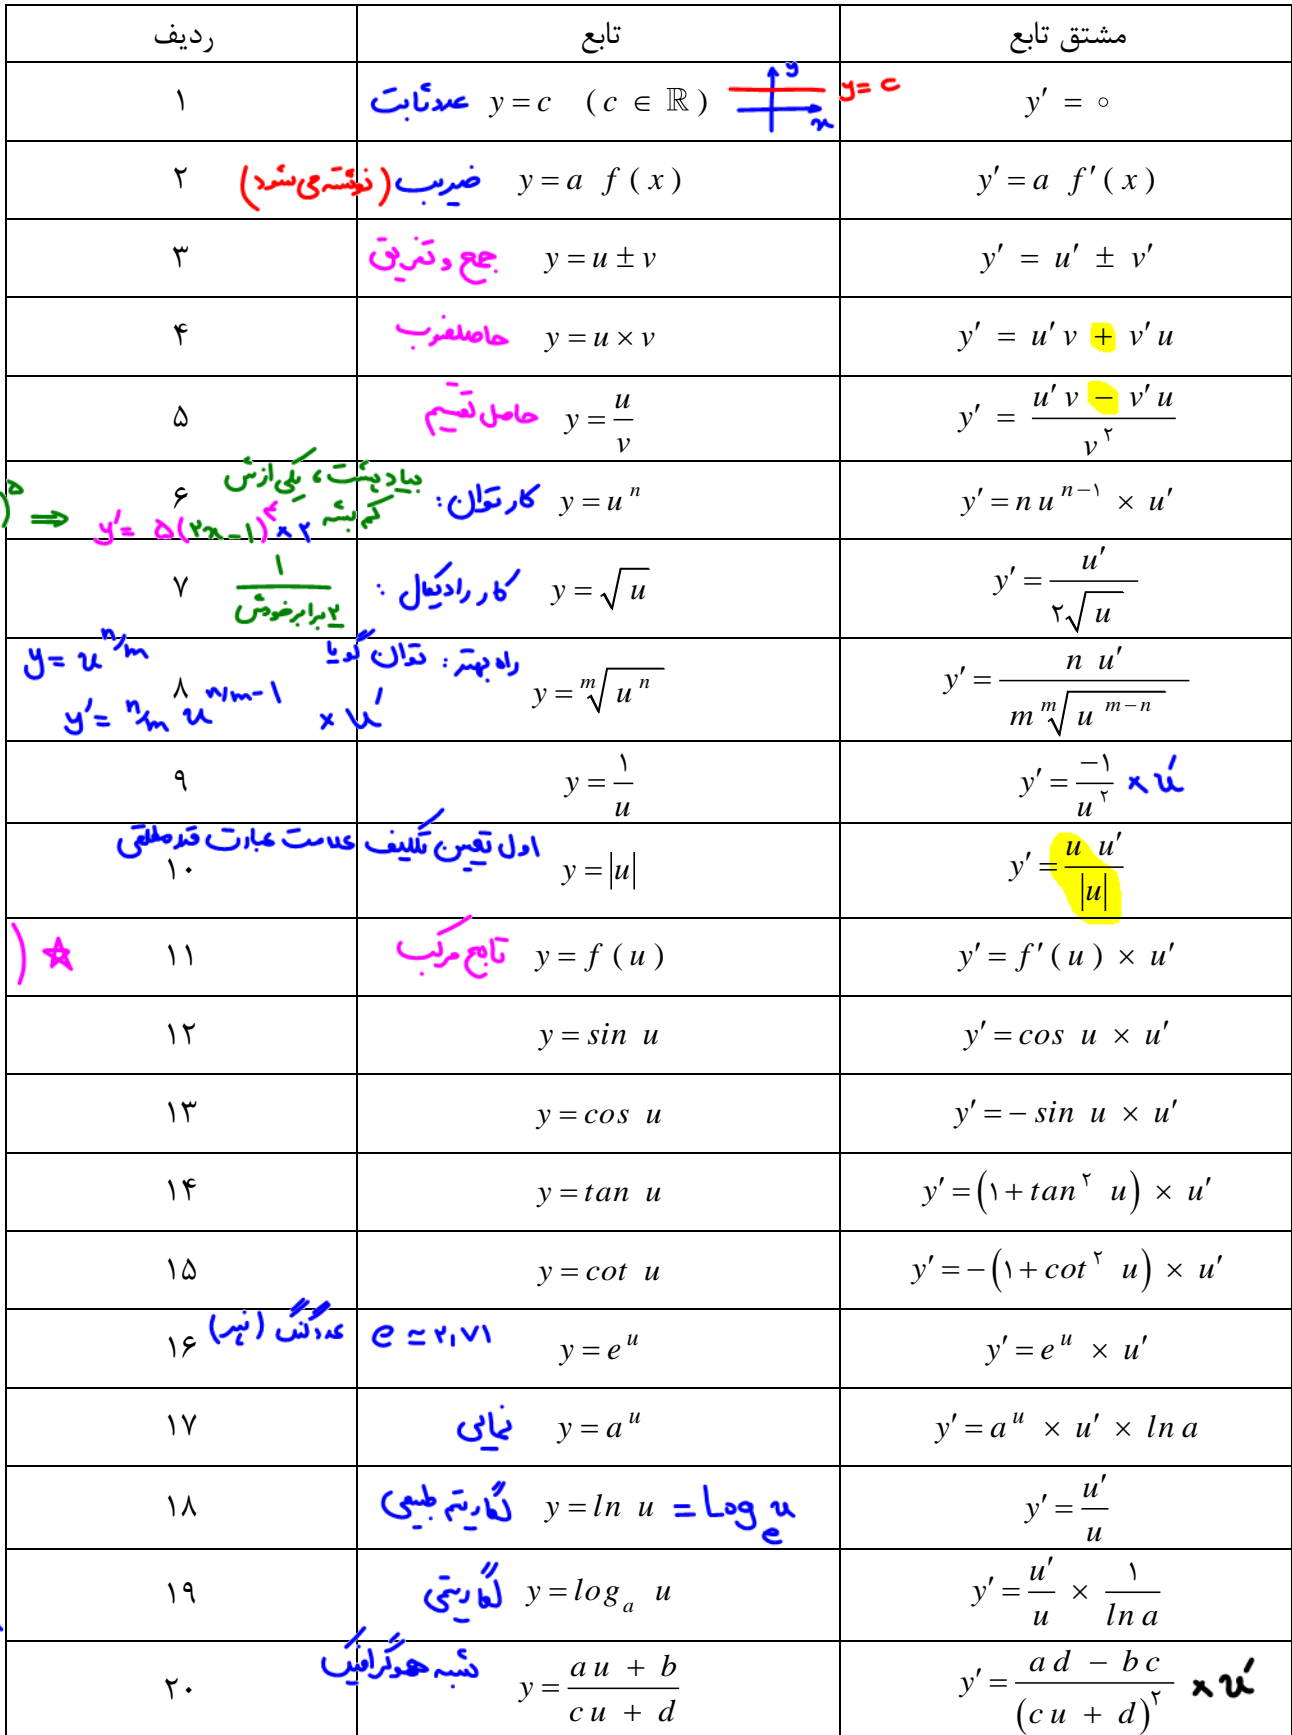 ردیف تابع مشتق تابع
۱ عدد ثابت y = c ( c ∈ ℝ ) y x y = c y′ = ۰
۲ ضریب (نوشته می شود) y = a f ( x ) y′ = a f′ ( x )
۳ جمع و تفریق y = u ± v y′ = u′ ± v′
۴ حاصلضرب y = u × v y′ = u′ v + v′ u
۵ حاصل تقسیم y = u/v y′ = (u′ v − v′ u)/v^۲
۶ کار توان: بیاد پشت، یکی ازش y = u^n y′ = n u^(n−۱) × u′
کم بشه
)^۵ ⇒ y′ = ۵(۲x−۱)^۴ × ۲
۷ کار رادیکال: ۱/۲ برابر خودش y = √u y′ = u′/(۲√u)
۸ راه بهتر: توان گویا y = ᵐ√(u^n) y′ = n u′/(m ᵐ√(u^(m−n)))
y = u^(n/m)
y′ = n/m u^(n/m−1) × u′
۹ y = ۱/u y′ = −۱/u^۲ × u′
اول تعیین تکلیف علامت عبارت قدرمطلقی
۱۰ y = |u| y′ = u u′/|u|
) ☆ ۱۱ تابع مرکب y = f ( u ) y′ = f′ ( u ) × u′
۱۲ y = sin u y′ = cos u × u′
۱۳ y = cos u y′ = − sin u × u′
۱۴ y = tan u y′ = (۱ + tan^۲ u) × u′
۱۵ y = cot u y′ = −(۱ + cot^۲ u) × u′
۱۶ عدد گنگ (نپر) e ≃ ۲,۷۱ y = e^u y′ = e^u × u′
۱۷ نمایی y = a^u y′ = a^u × u′ × ln a
۱۸ لگاریتم طبیعی y = ln u = Log_e u y′ = u′/u
۱۹ لگاریتمی y = log_a u y′ = u′/u × ۱/ln a
۲۰ شبه هموگرافیک y = (au + b)/(cu + d) y′ = (ad − bc)/(cu + d)^۲ × u′